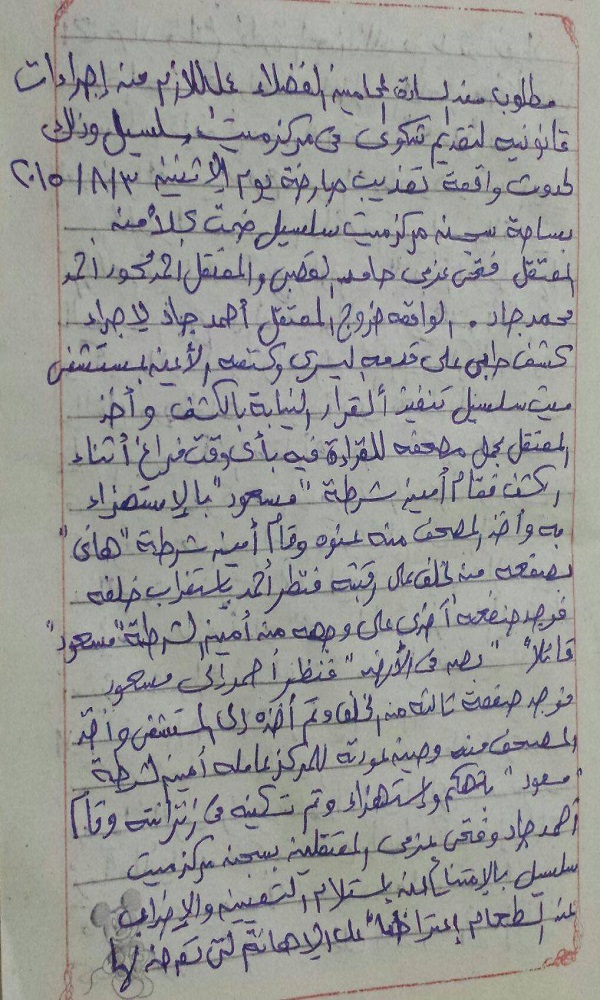 مطلوب من السادة المحامين الفضلاء عمل اللازم من إجراءات
قانونيه لتقديم شكوى فى مركز ميت سلسيل وذلك
لحدوث واقعة تعذيب صارخة يوم الإثنين ٢٠١٥/٨/٣
بساحة سجن مركز ميت سلسيل ضمت كلاً من
المعتقل فتحى عزمى حامد القصبى والمعتقل احمد محمود احمد
محمد جاد . الواقعه خروج المعتقل أحمد جاد لإجراء
كشف طبى على قدمه اليسرى وكتفه الأيمن بمستشفى
ميت سلسيل تنفيذ ألقرار النيابة بالكشف وأخذ
المعتقل يحمل مصحفه للقراءة فيه بأى وقت فراغ أثناء
الكشف فقام أمين شرطة "مسعود" بالإستهزاء
به وأخذ المصحف منه عنوه وقام أمين شرطة "هانى"
بصفعه من الخلف على رقبته فنظر أحمد بإستغراب خلفه
فوجد صفعه أخرى على وجهه من أمين الشرطة "مسعود"
قائلاً "بص فى الأرض" فنظر أحمد إلى مسعود
فوجد صفعة ثالثه من الخلف وتم أخذه إلى المستشفى وأخذ
المصحف منه وحين عودته للمركز عامله أمين الشرطة
"مسعود" بتهكم وإستهزاء وتم تسكينه فى زنزانته وقام
أحمد جاد وفتحى عزمى المعتقلين بسجن مركز ميت
سلسيل بالإمتناع عن إستلام التعيين والإضراب
عن الطعام إعتراضاً على الإهانة التى تعرض لها